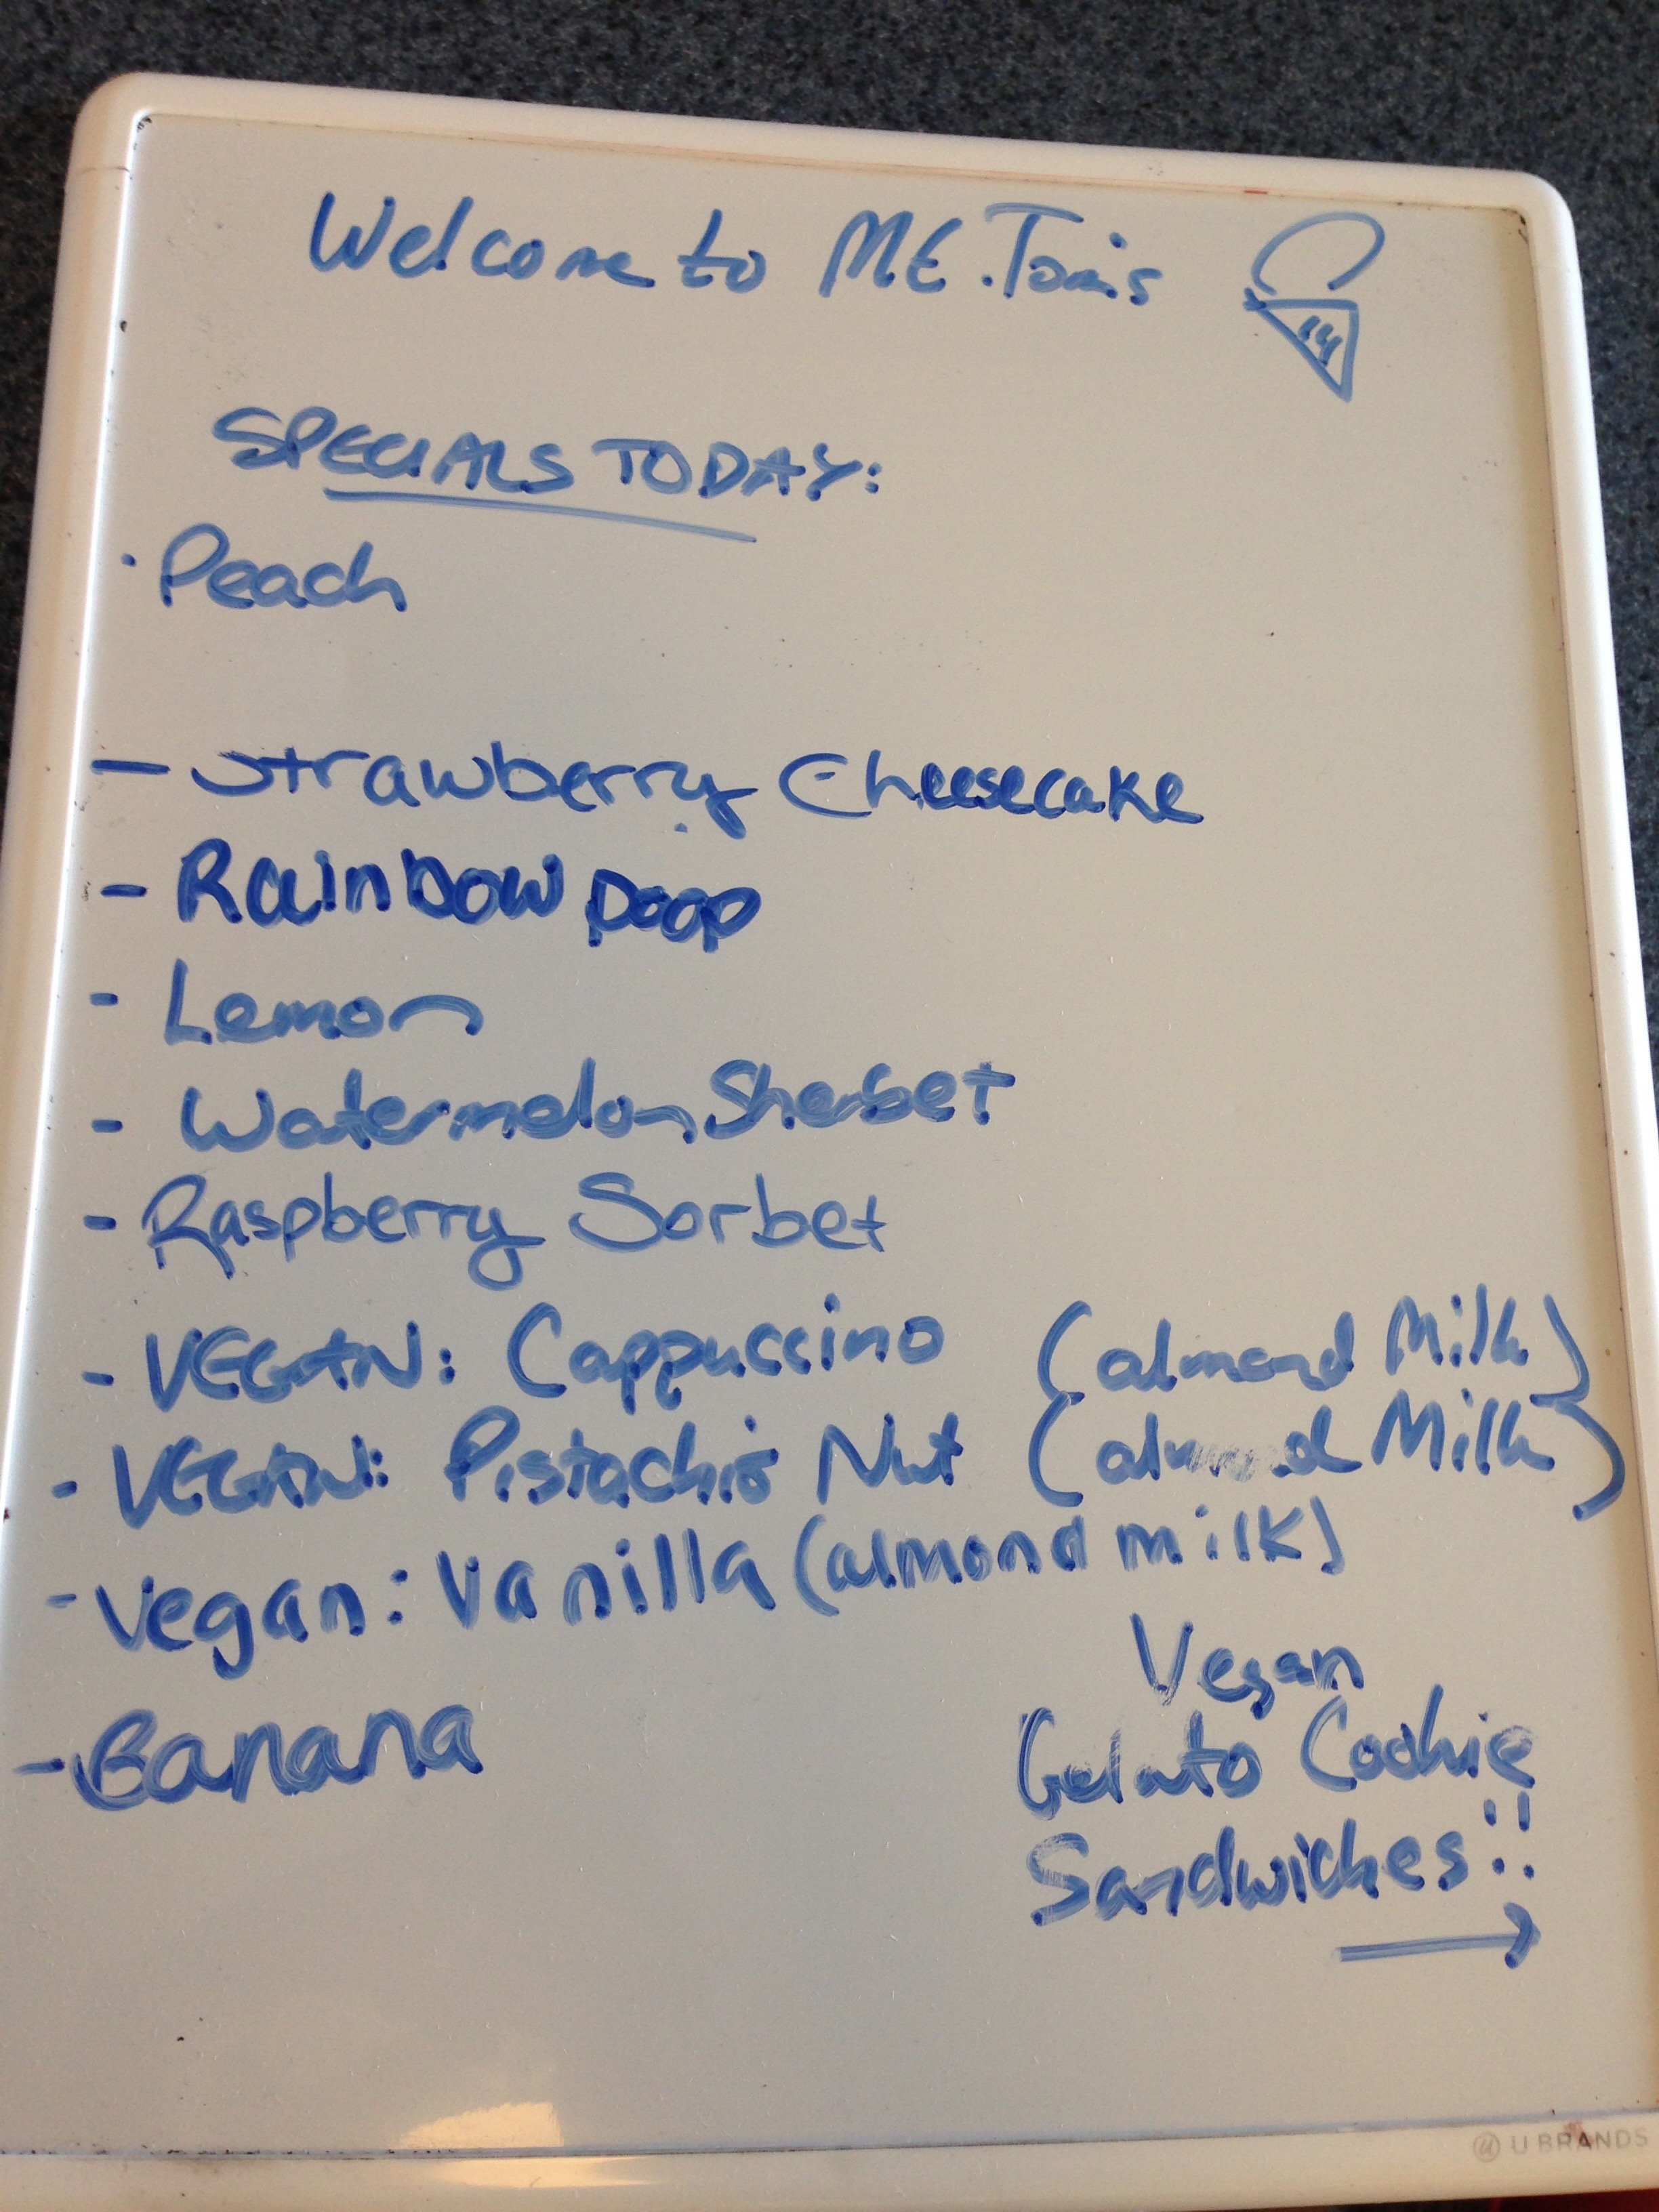 Welcome to Mt. Tom's
SPECIALS TODAY:
· Peach
- Strawberry Cheesecake
- Rainbow Poop
- Lemon
- Watermelon Sherbet
- Raspberry Sorbet
- VEGAN: Cappuccino (almond Milk)
- VEGAN: Pistachio Nut (almond Milk)
- Vegan: Vanilla (almond milk)
- Banana
Vegan
Gelato Cookie
Sandwiches!!
→
U BRANDS